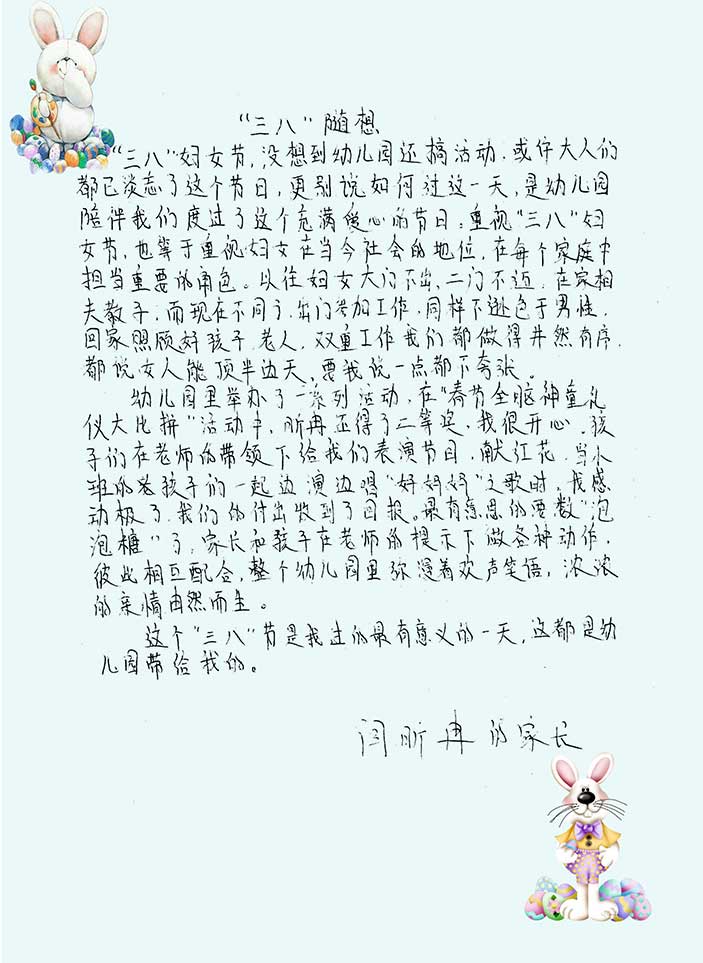 “三八”随想
“三八”妇女节,没想到幼儿园还搞活动,或许大人们
都已淡忘了这个节日,更别说如何过这一天,是幼儿园
陪伴我们度过了这个充满爱心的节日。重视“三八”妇
女节,也等于重视妇女在当今社会的地位,在每个家庭中
担当重要的角色。以往妇女大门不出、二门不迈,在家相
夫教子,而现在不同了,出门参加工作,同样不逊色于男性,
回家照顾好孩子、老人,双重工作我们都做得井然有序,
都说女人能顶半边天,要我说一点都不夸张。
幼儿园里举办了一系列活动,在“春节全脑神童礼
仪大比拼”活动中,昕冉还得了二等奖,我很开心。孩
子们在老师的带领下给我们表演节目,献红花,当小
班的孩子们一起边演边唱“好妈妈”之歌时,我感
动极了,我们的付出收到了回报。最有意思的要数“泡
泡糖”了,家长和孩子在老师的提示下做各种动作,
彼此相互配合,整个幼儿园里弥漫着欢声笑语,浓浓
的亲情由然而生。
这个“三八”节是我过的最有意义的一天,这都是幼
儿园带给我的。
闫昕冉的家长